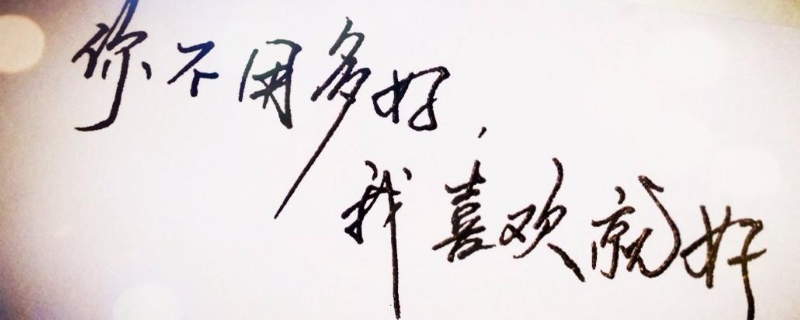 你不用多好,
我喜欢就好